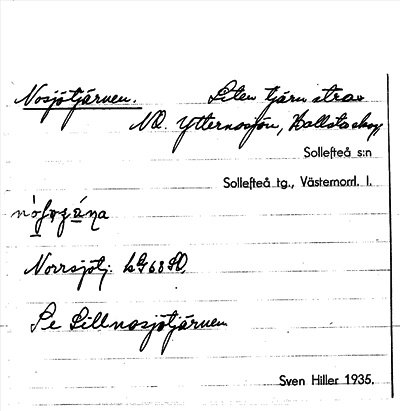 Nosjötjärnen. Liten tjärn strax
NO. Ytternosjön, Hallstaskog
Sollefteå s:n
Sollefteå tg., Västernorrl. l.
Norrsjötj. 68 SO.
Se Lillnosjötjärnen
Sven Hiller 1935.